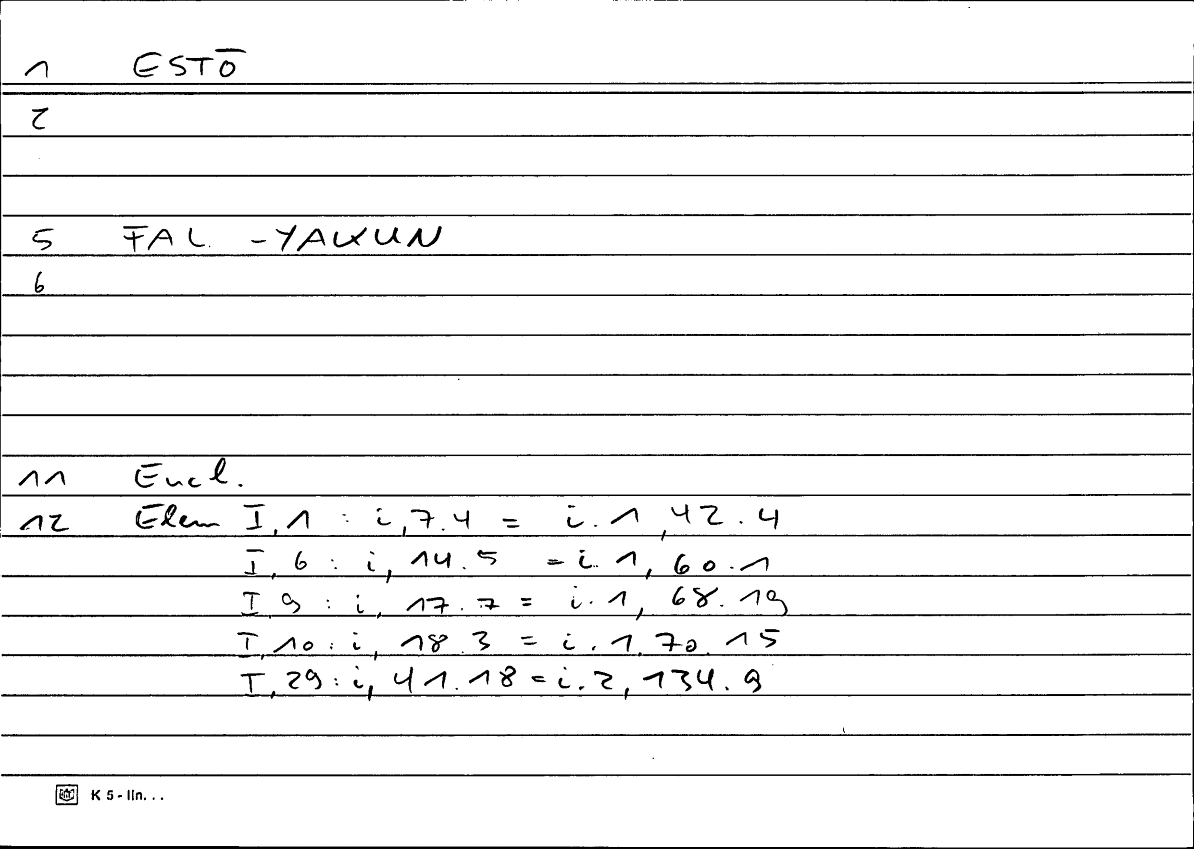 1 ESTŌ
2
5 FAL -YAKUN
6
11 Eucl.
12 Elem I,1 : i,7.4 = i.1,42.4
I,6 : i,14.5 = i.1,60.1
I,9 : i,17.7 = i.1,68.19
I,10 : i,18.3 = i.1,70.15
I,29 : i,41.18 = i.2,134.9
K 5 - lin. . .